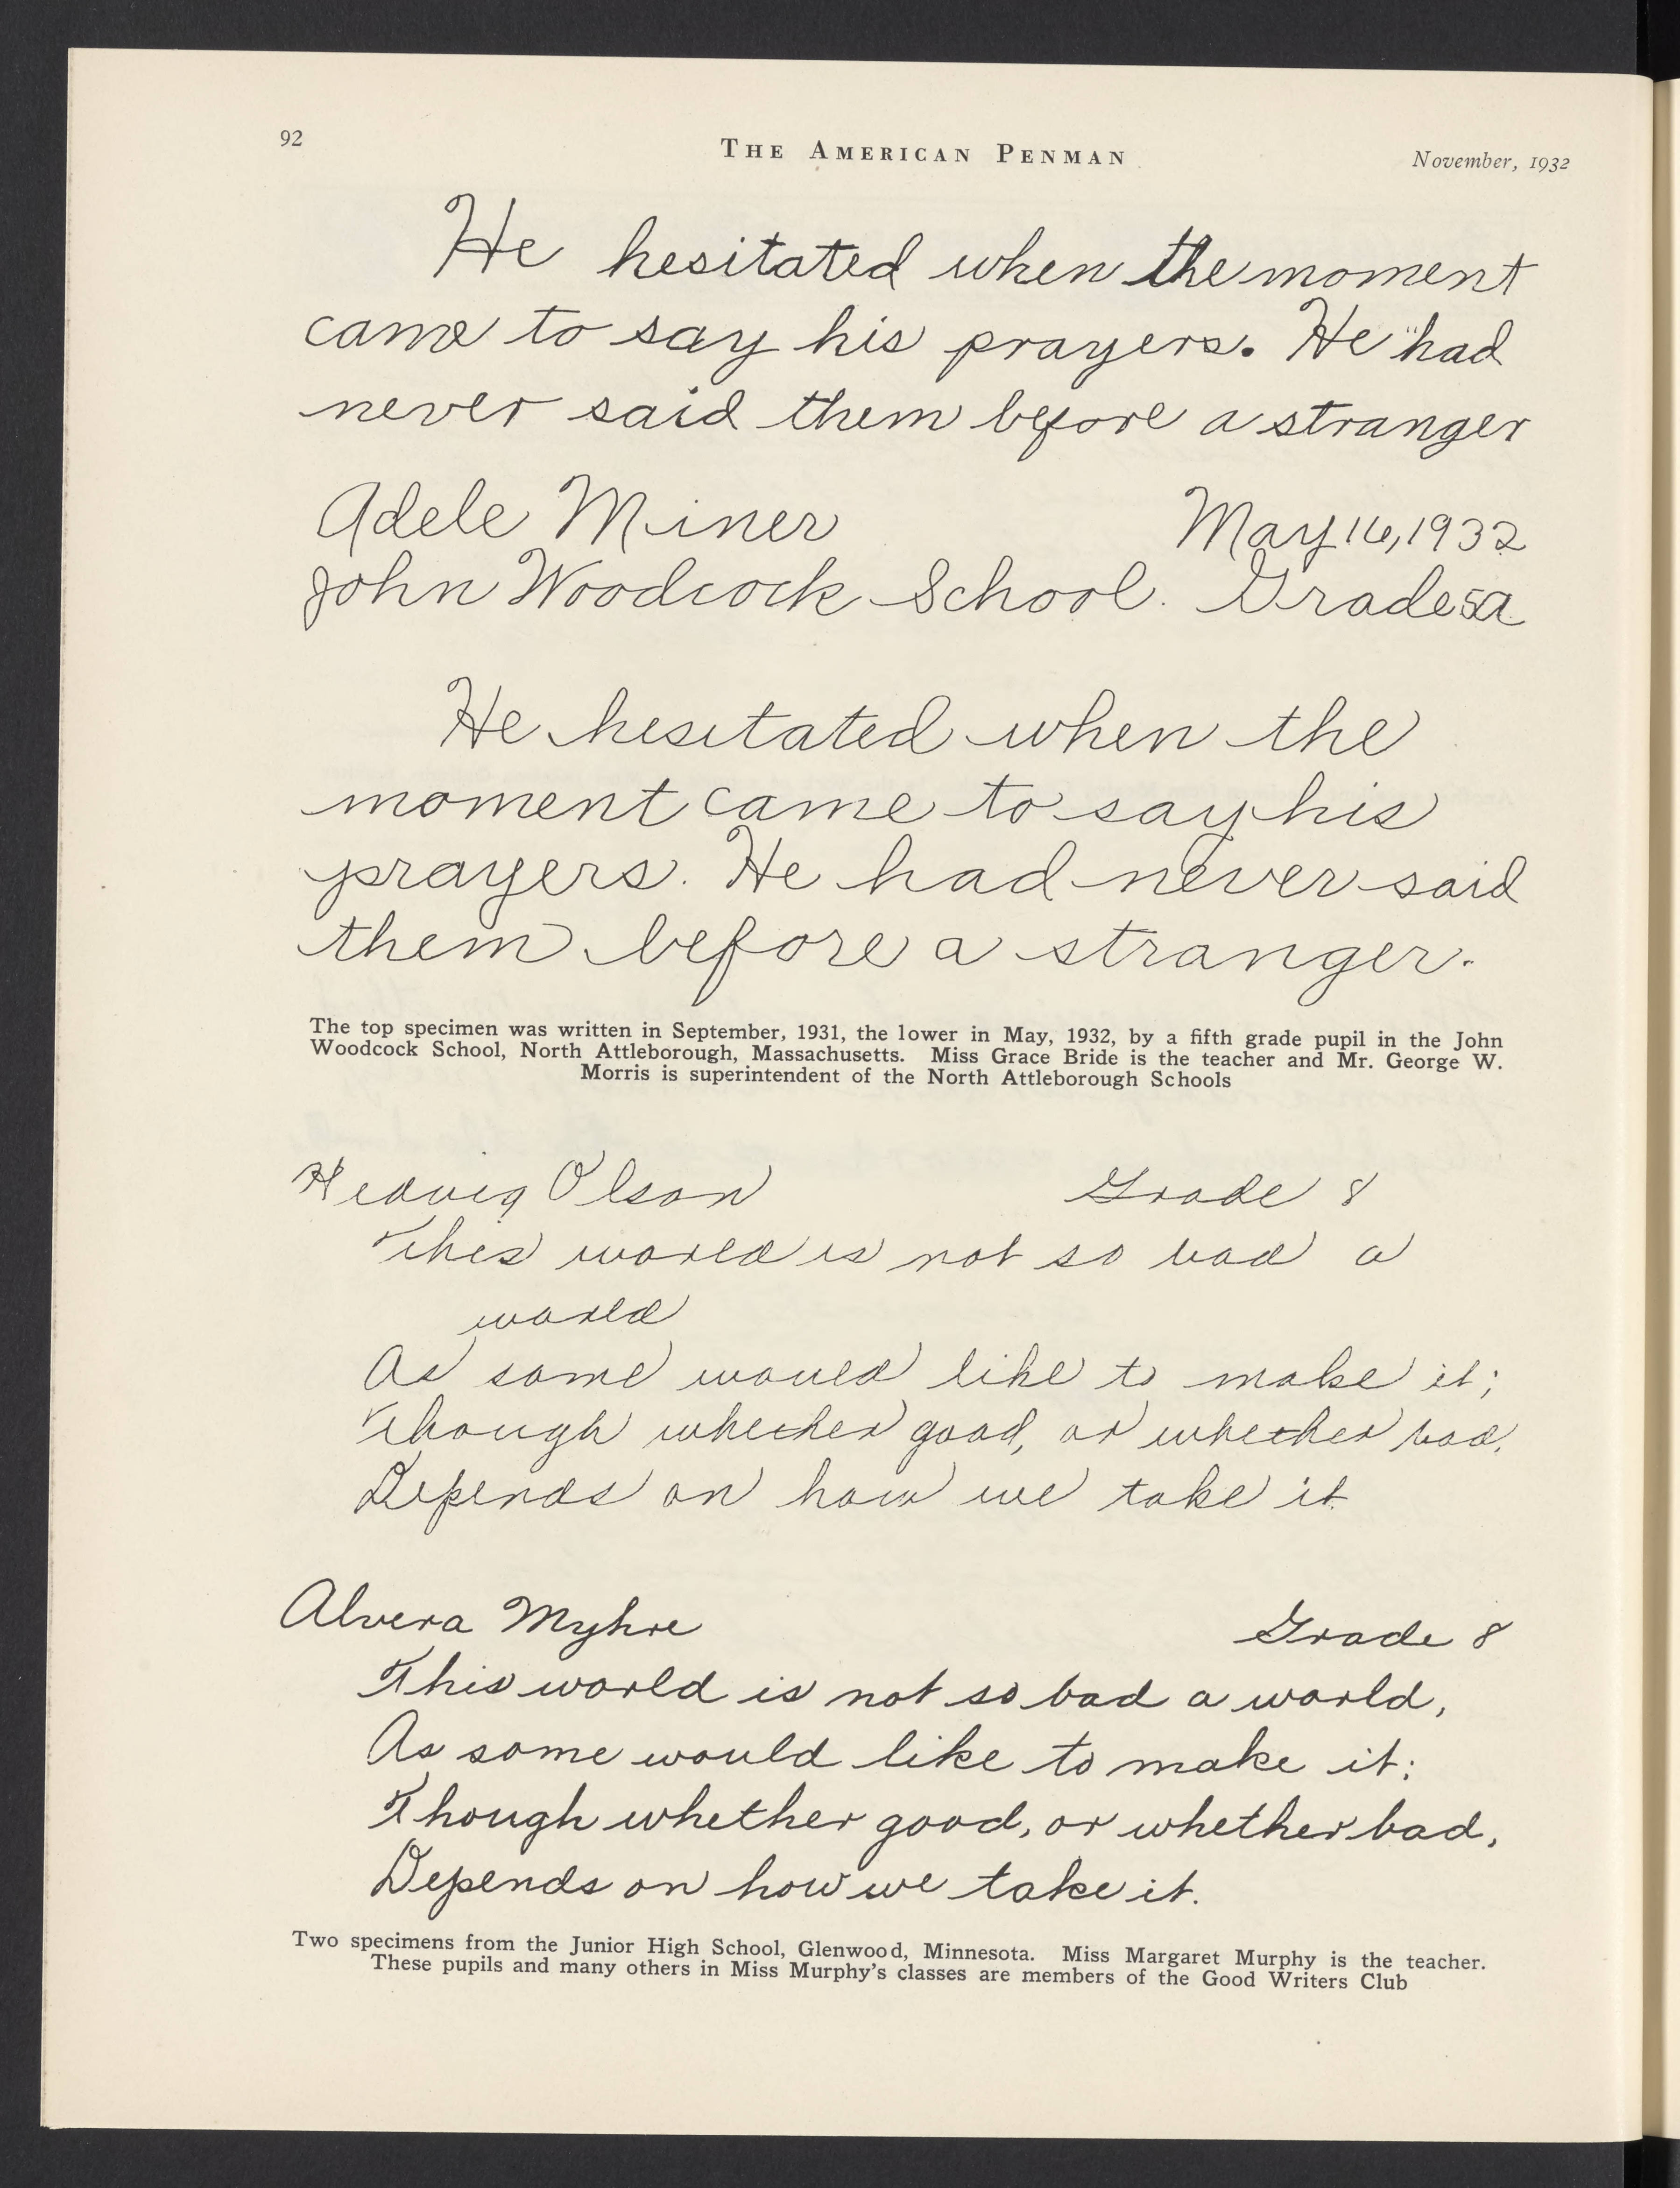 92
THE AMERICAN PENMAN
November, 1932
He hesitated when the moment
came to say his prayers. He had
never said them before a stranger
Adele Miner May 16, 1932
John Woodcock School. Grade 5A
He hesitated when the
moment came to say his
prayers. He had never said
them before a stranger.
The top specimen was written in September, 1931, the lower in May, 1932, by a fifth grade pupil in the John
Woodcock School, North Attleborough, Massachusetts. Miss Grace Bride is the teacher and Mr. George W.
Morris is superintendent of the North Attleborough Schools
Hedvig Olson Grade 8
This world is not so bad a
world
As some would like to make it;
Though whether good, or whether bad,
Depends on how we take it.
Alvera Myhre Grade 8
This world is not so bad a world,
As some would like to make it;
Though whether good, or whether bad,
Depends on how we take it.
Two specimens from the Junior High School, Glenwood, Minnesota. Miss Margaret Murphy is the teacher.
These pupils and many others in Miss Murphy's classes are members of the Good Writers Club